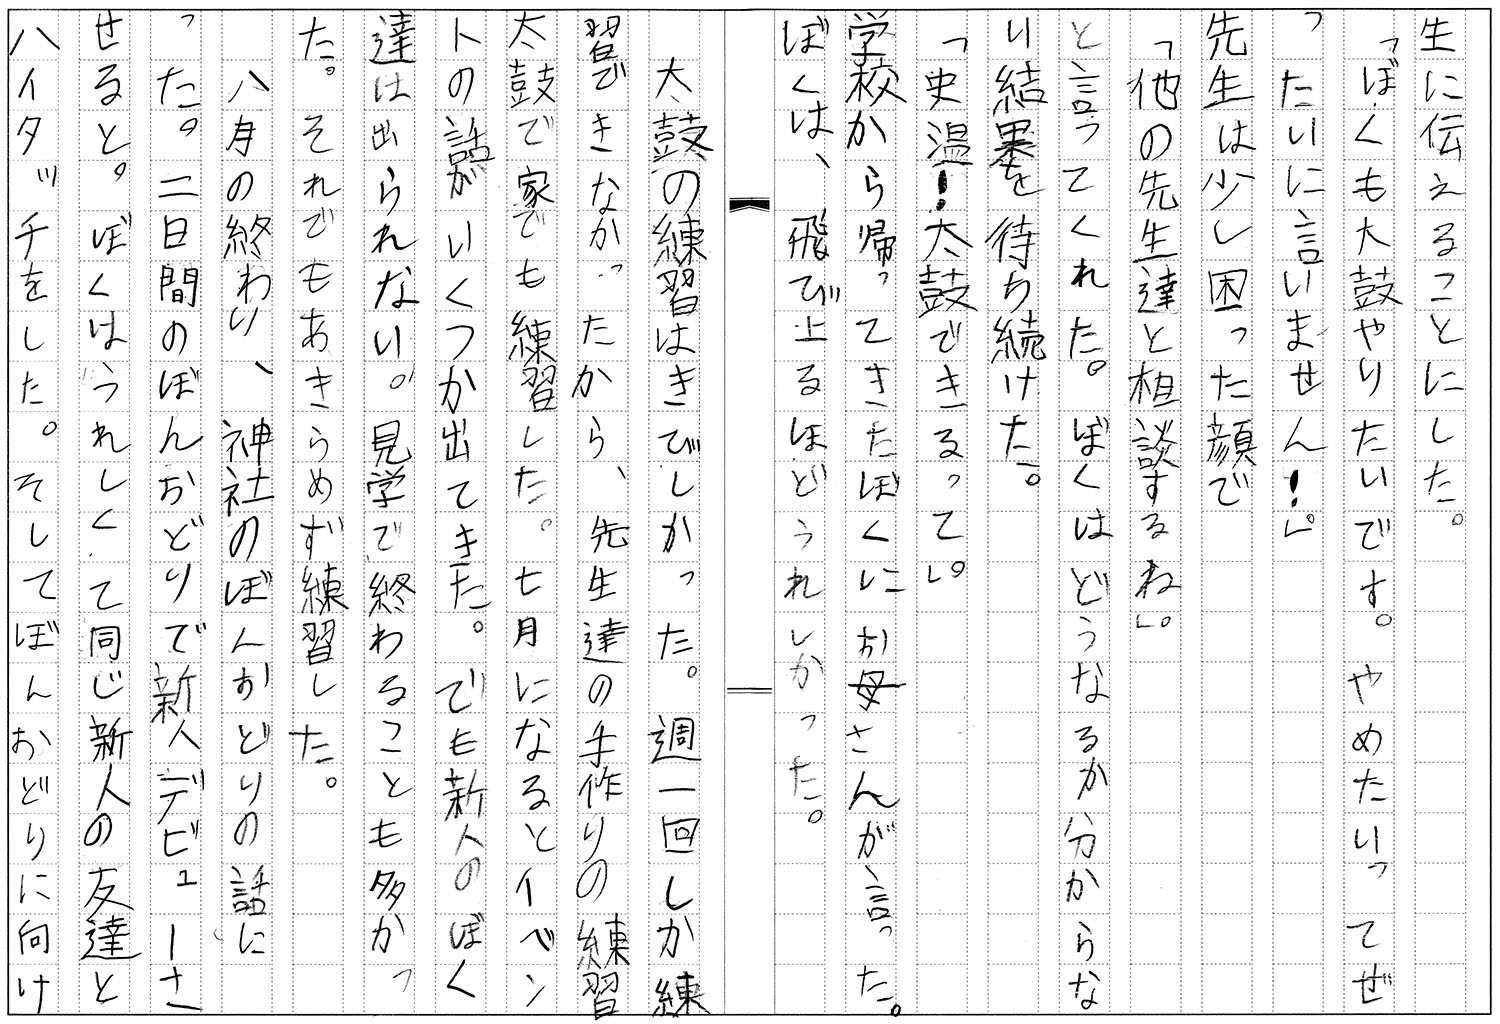 生に伝えることにした。
「ぼくも太鼓やりたいです。やめたいってぜ
ったいに言いません！」。
先生は少し困った顔で
「他の先生達と相談するね」。
と言ってくれた。ぼくはどうなるか分からな
い結果を待ち続けた。
「史温！太鼓できるって」。
学校から帰ってきたぼくにお母さんが言った。
ぼくは、飛び上るほどうれしかった。
太鼓の練習はきびしかった。週一回しか練
習できなかったから、先生達の手作りの練習
太鼓で家でも練習した。七月になるとイベン
トの話がいくつか出てきた。でも新人のぼく
達は出られない。見学で終わることも多かっ
た。それでもあきらめず練習した。
八月の終わり、神社のぼんおどりの話に
った。二日間のぼんおどりで新人デビューさ
せると。ぼくはうれしくて同じ新人の友達と
ハイタッチをした。そしてぼんおどりに向け